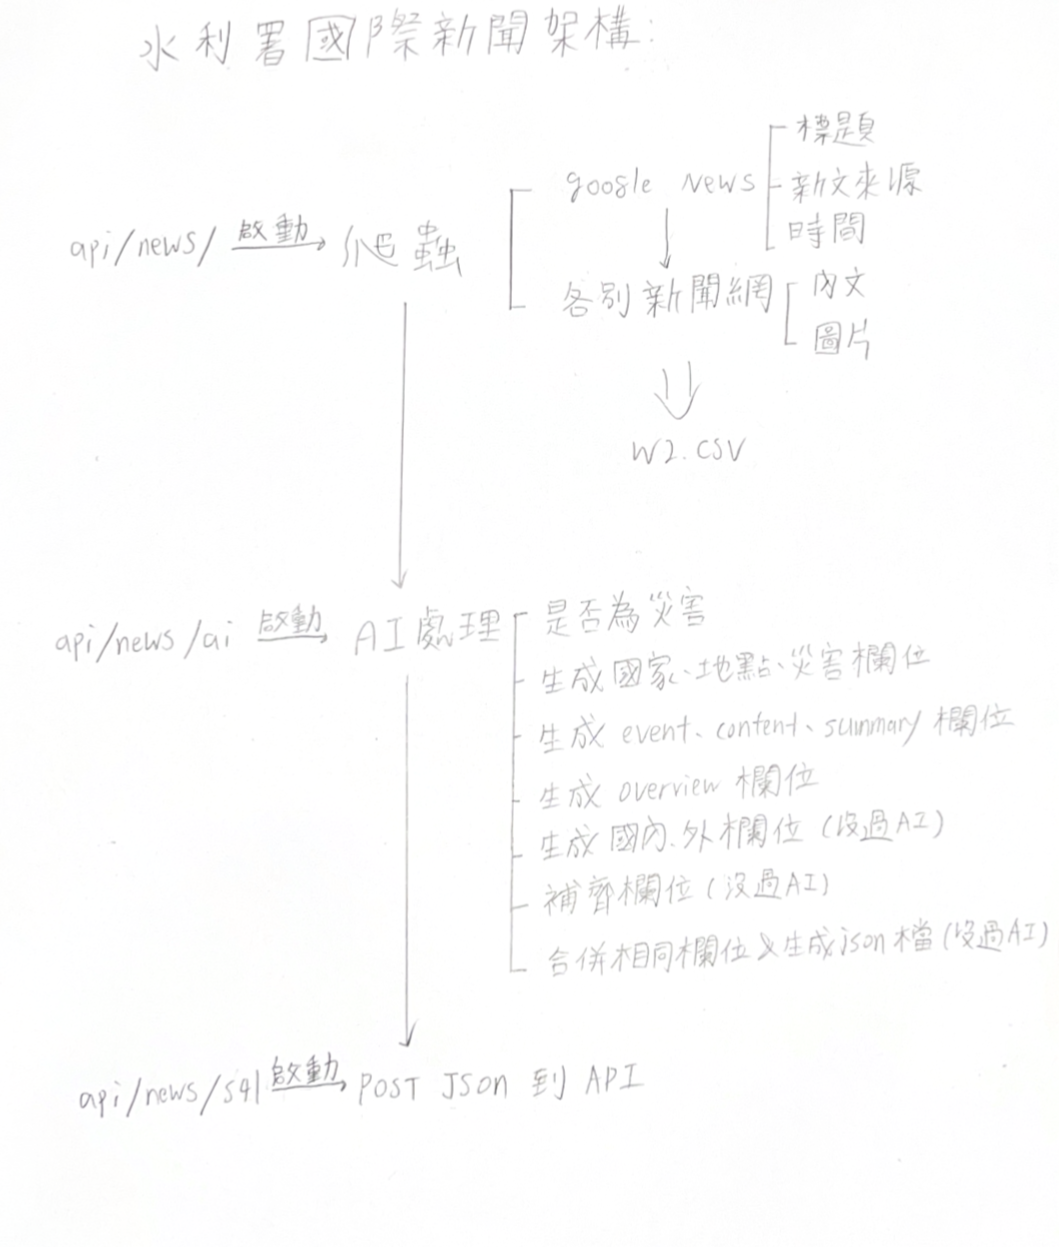 水利署國際新聞架構:
標題
google News
新文來源
時間
api/news/ 啟動 爬蟲
各別新聞網
內文
圖片
W2.csv
api/news/ai 啟動 AI處理
是否為災害
生成國家、地點、災害欄位
生成 event、content、summary 欄位
生成 overview 欄位
生成 國內、外欄位 (沒過AI)
補齊欄位 (沒過AI)
合併相同欄位&生成json檔 (沒過AI)
api/news/sql 啟動 POST JSon 到 API